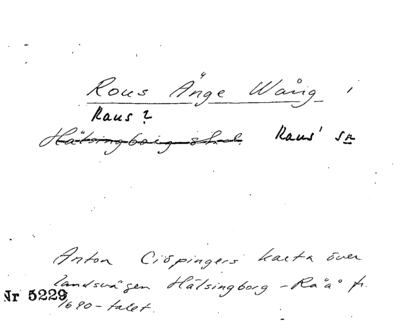 Rous Änge Wång
Raus?
Hälsingborg stad Raus' sn
Anton Ciöpingers karta över
landsvägen Hälsingborg - Råå fr.
Nr 5229
1690-talet.